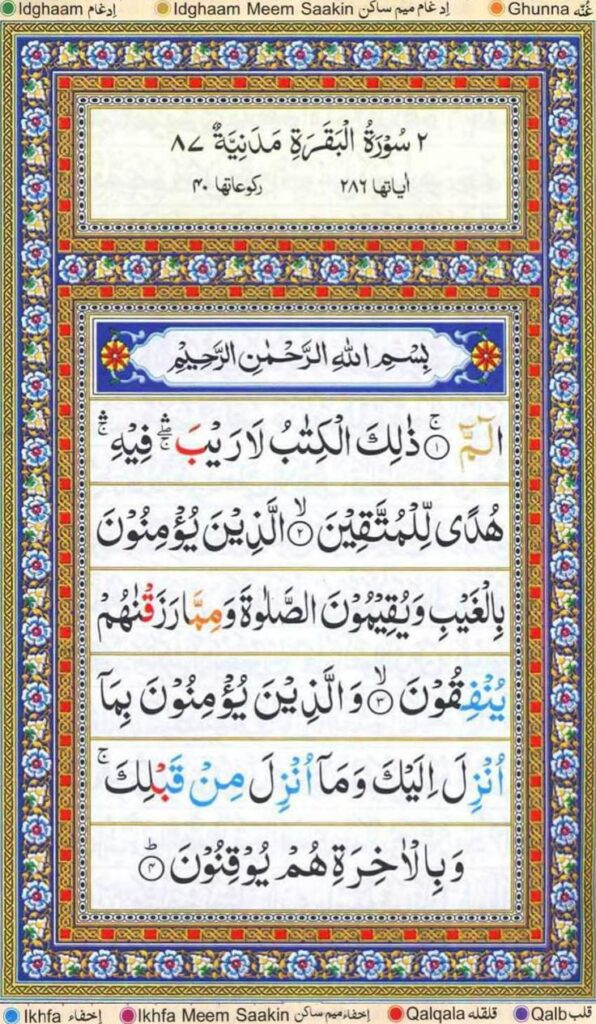 Idghaam ادغام Idghaam Meem Saakin ادغام میم ساکن Ghunna غُنَّه
٢ سُوْرَةُ الْبَقَرَةِ مَدَنِيَّةٌ ٨٧
اٰیاتها ٢٨٦ رکوعاتها ۴۰
بِسْمِ اللهِ الرَّحْمٰنِ الرَّحِيْمِ
الٓمّٓ ۚ﴿١﴾ ذٰلِكَ الْكِتٰبُ لَا رَيْبَ ۛۖۚ فِيْهِ ۛۚ
هُدًى لِّلْمُتَّقِيْنَ ۙ﴿٢﴾ الَّذِيْنَ يُؤْمِنُوْنَ
بِالْغَيْبِ وَيُقِيْمُوْنَ الصَّلٰوةَ وَمِمَّا رَزَقْنٰهُمْ
يُنْفِقُوْنَ ۙ﴿٣﴾ وَالَّذِيْنَ يُؤْمِنُوْنَ بِمَآ
اُنْزِلَ اِلَيْكَ وَمَآ اُنْزِلَ مِنْ قَبْلِكَ ۚ
وَبِالْاٰخِرَةِ هُمْ يُوْقِنُوْنَ ؕ﴿۴﴾
Ikhfa إخفاء Ikhfa Meem Saakin إخفاء میم ساکن Qalqala قلقله Qalb قلب